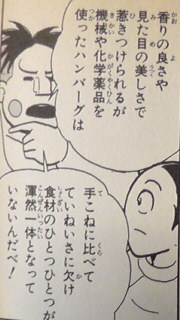 香りの良さや
見た目の美しさで
惹きつけられるが
機械や化学薬品を
使ったハンバーグは
手こねに比べて
ていねいさに欠け
食材のひとつひとつが
渾然一体となって
いないんだべ!